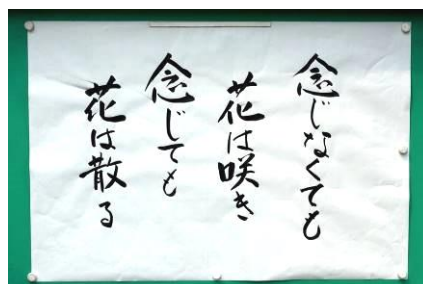 念じなくても
花は咲き
念じても
花は散る